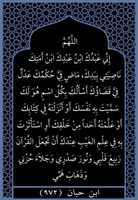 اللَّهُمَّ
إِنِّي عَبْدُكَ ابْنُ عَبْدِكَ ابْنُ أَمَتِكَ
نَاصِيَتِي بِيَدِكَ، مَاضٍ فِيَّ حُكْمُكَ عَدْلٌ
فِيَّ قَضَاؤُكَ أَسْأَلُكَ بِكُلِّ اسْمٍ هُوَ لَكَ
سَمَّيْتَ بِهِ نَفْسَكَ أَوْ أَنْزَلْتَهُ فِي كِتَابِكَ
أَوْ عَلَّمْتَهُ أَحَدًا مِنْ خَلْقِكَ أَوِ اسْتَأْثَرْتَ
بِهِ فِي عِلْمِ الْغَيْبِ عِنْدَكَ أَنْ تَجْعَلَ الْقُرْآنَ
رَبِيعَ قَلْبِي وَنُورَ صَدْرِي وَجِلَاءَ حُزْنِي
وَذَهَابَ هَمِّي
ابن حبان (٩٧٢)